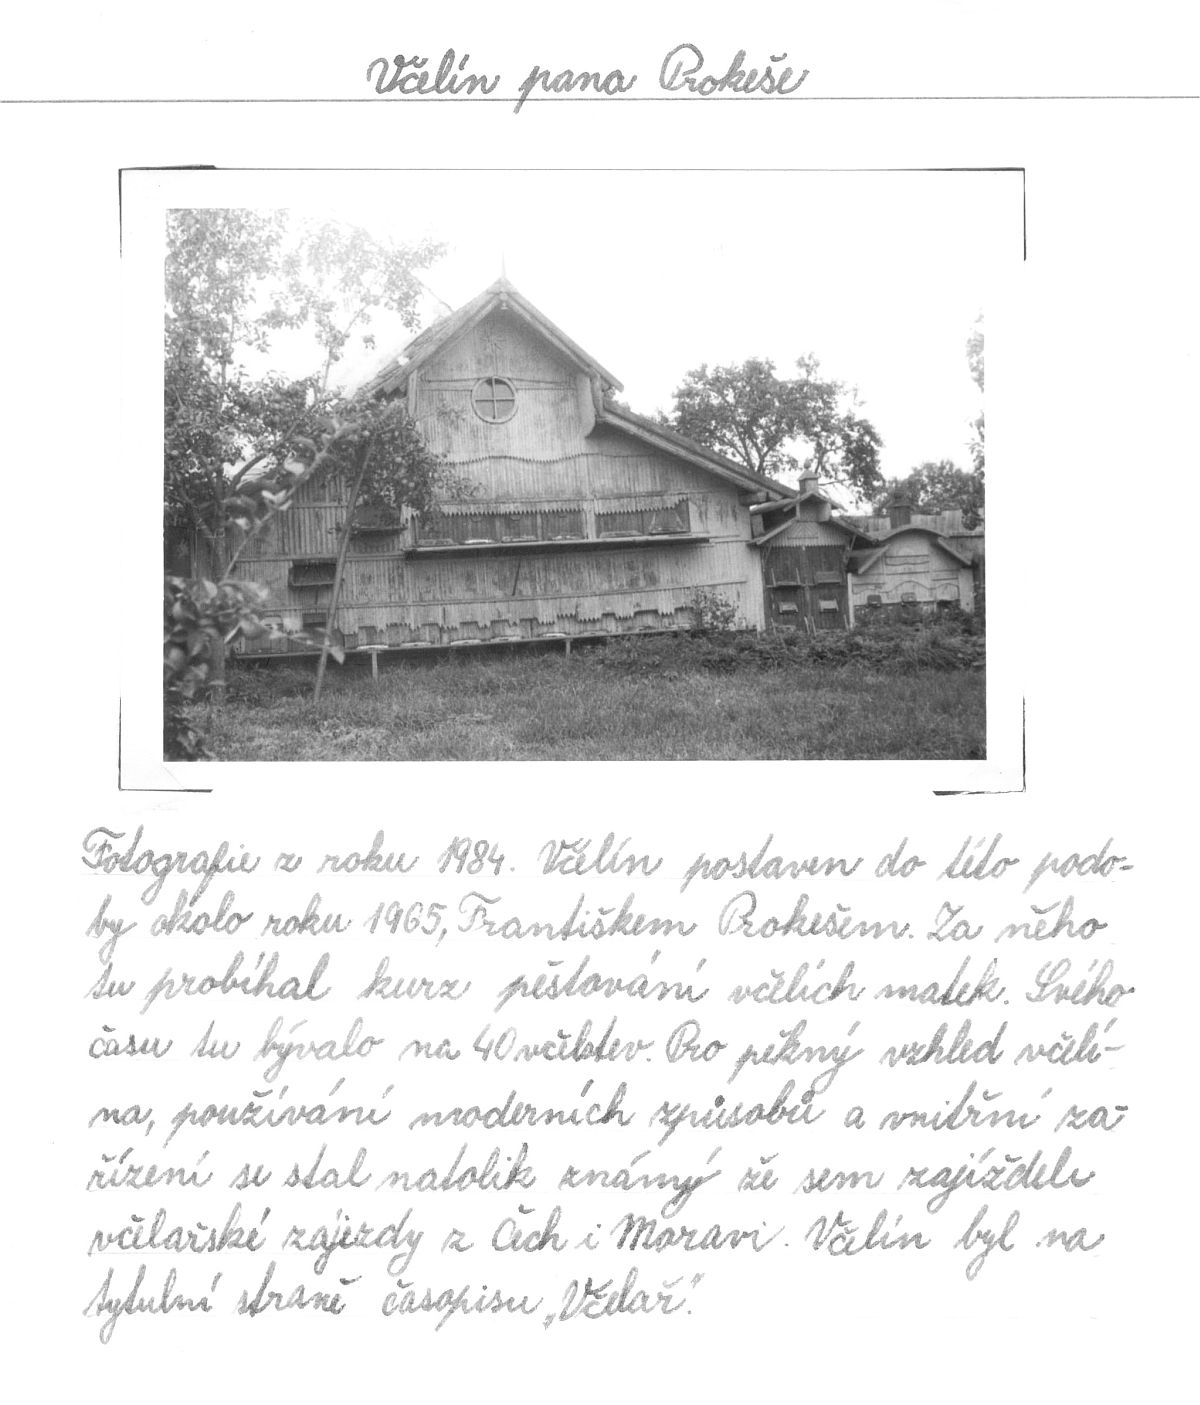 Včelín pana Prokeše
Fotografie z roku 1984. Včelín postaven do této podo-
by okolo roku 1965, Františkem Prokešem. Za něho
tu probíhal kurz pěstování včelích matek. Svého
času tu bývalo na 40 včelstev. Pro pěkný vzhled včelí-
na, používání moderních způsobů a vnitřní za-
řízení se stal natolik známý že sem zajížděli
včelařské zájezdy z Čech i Moravi. Včelín byl na
tytulní straně časopisu „Včelař".